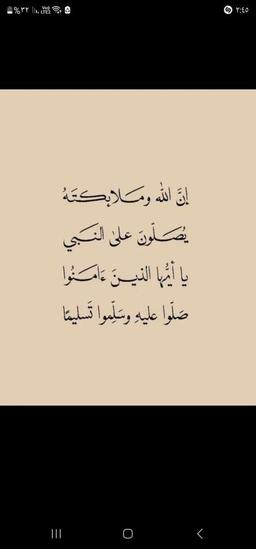 %٣٢ ٢:٤٥
إنَّ الله وملائكتَهُ
يُصَلّونَ على النَبي
يا أيُّها الذينَ ءَامَنُوا
صَلّوا عليهِ وسَلِّموا تَسليمًا